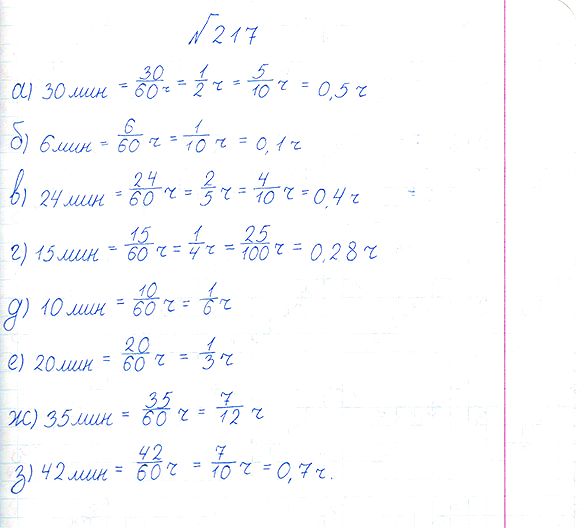 №217
а) 30 мин = 30/60 ч = 1/2 ч = 5/10 ч = 0,5 ч
б) 6 мин = 6/60 ч = 1/10 ч = 0,1 ч
в) 24 мин = 24/60 ч = 2/5 ч = 4/10 ч = 0,4 ч
г) 15 мин = 15/60 ч = 1/4 ч = 25/100 ч = 0,28 ч
д) 10 мин = 10/60 ч = 1/6 ч
е) 20 мин = 20/60 ч = 1/3 ч
ж) 35 мин = 35/60 ч = 7/12 ч
з) 42 мин = 42/60 ч = 7/10 ч = 0,7 ч.